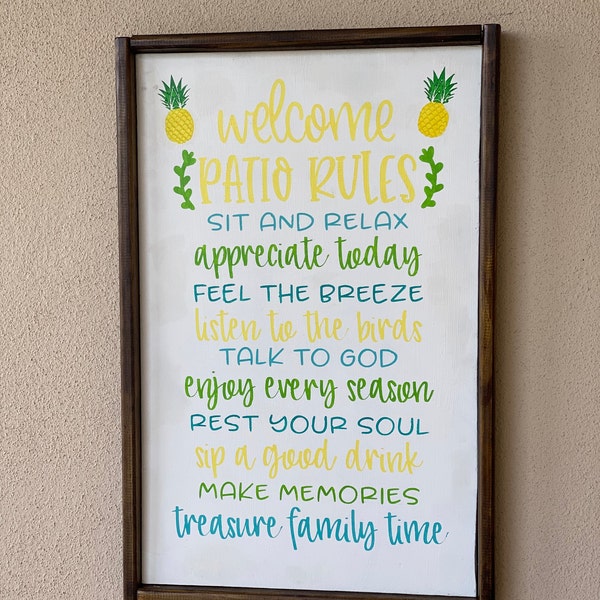 welcome
PATIO RULES
SIT AND RELAX
appreciate today
FEEL THE BREEZE
listen to the birds
TALK TO GOD
enjoy every season
REST YOUR SOUL
sip a good drink
MAKE MEMORIES
treasure family time